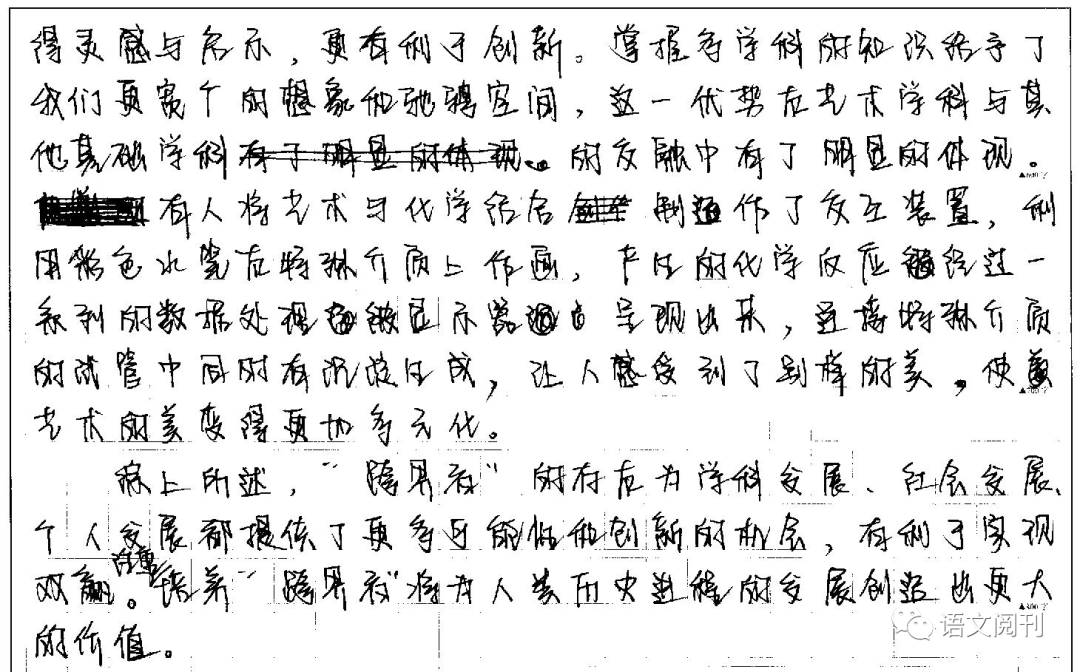 得灵感与启示，更有利于创新。掌握多学科的知识给予了
我们更宽广的想象和驰骋空间，这一优势在艺术学科与其
他基础学科有了明显的体现。的交融中有了明显的体现。
有人将艺术与化学结合制作了交互装置，利
用彩色水笔在特殊介质上作画，产生的化学反应经过一
系列的数据处理被显示器呈现出来，连接特殊介质
的试管中同时有沉淀生成，让人感受到了别样的美，使
艺术的美变得更加多元化。
综上所述，“跨界衫”的存在为学科发展、社会发展、
个人发展都提供了更多可能性和创新的机会，有利于实现
双赢。注重培养“跨界衫”将为人类历史进程的发展创造出更大
的价值。
语文阅刊